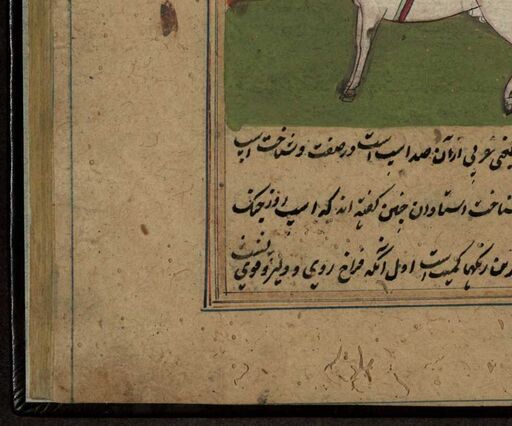 عربی ازان صد اسپ است در صفت و شناخت اسپ
شناخت استادان چنین گفته اند که اسپ روز جنک
رنکها کمیت است اول آنکه فراخ روی و دلیر و قوی پشت